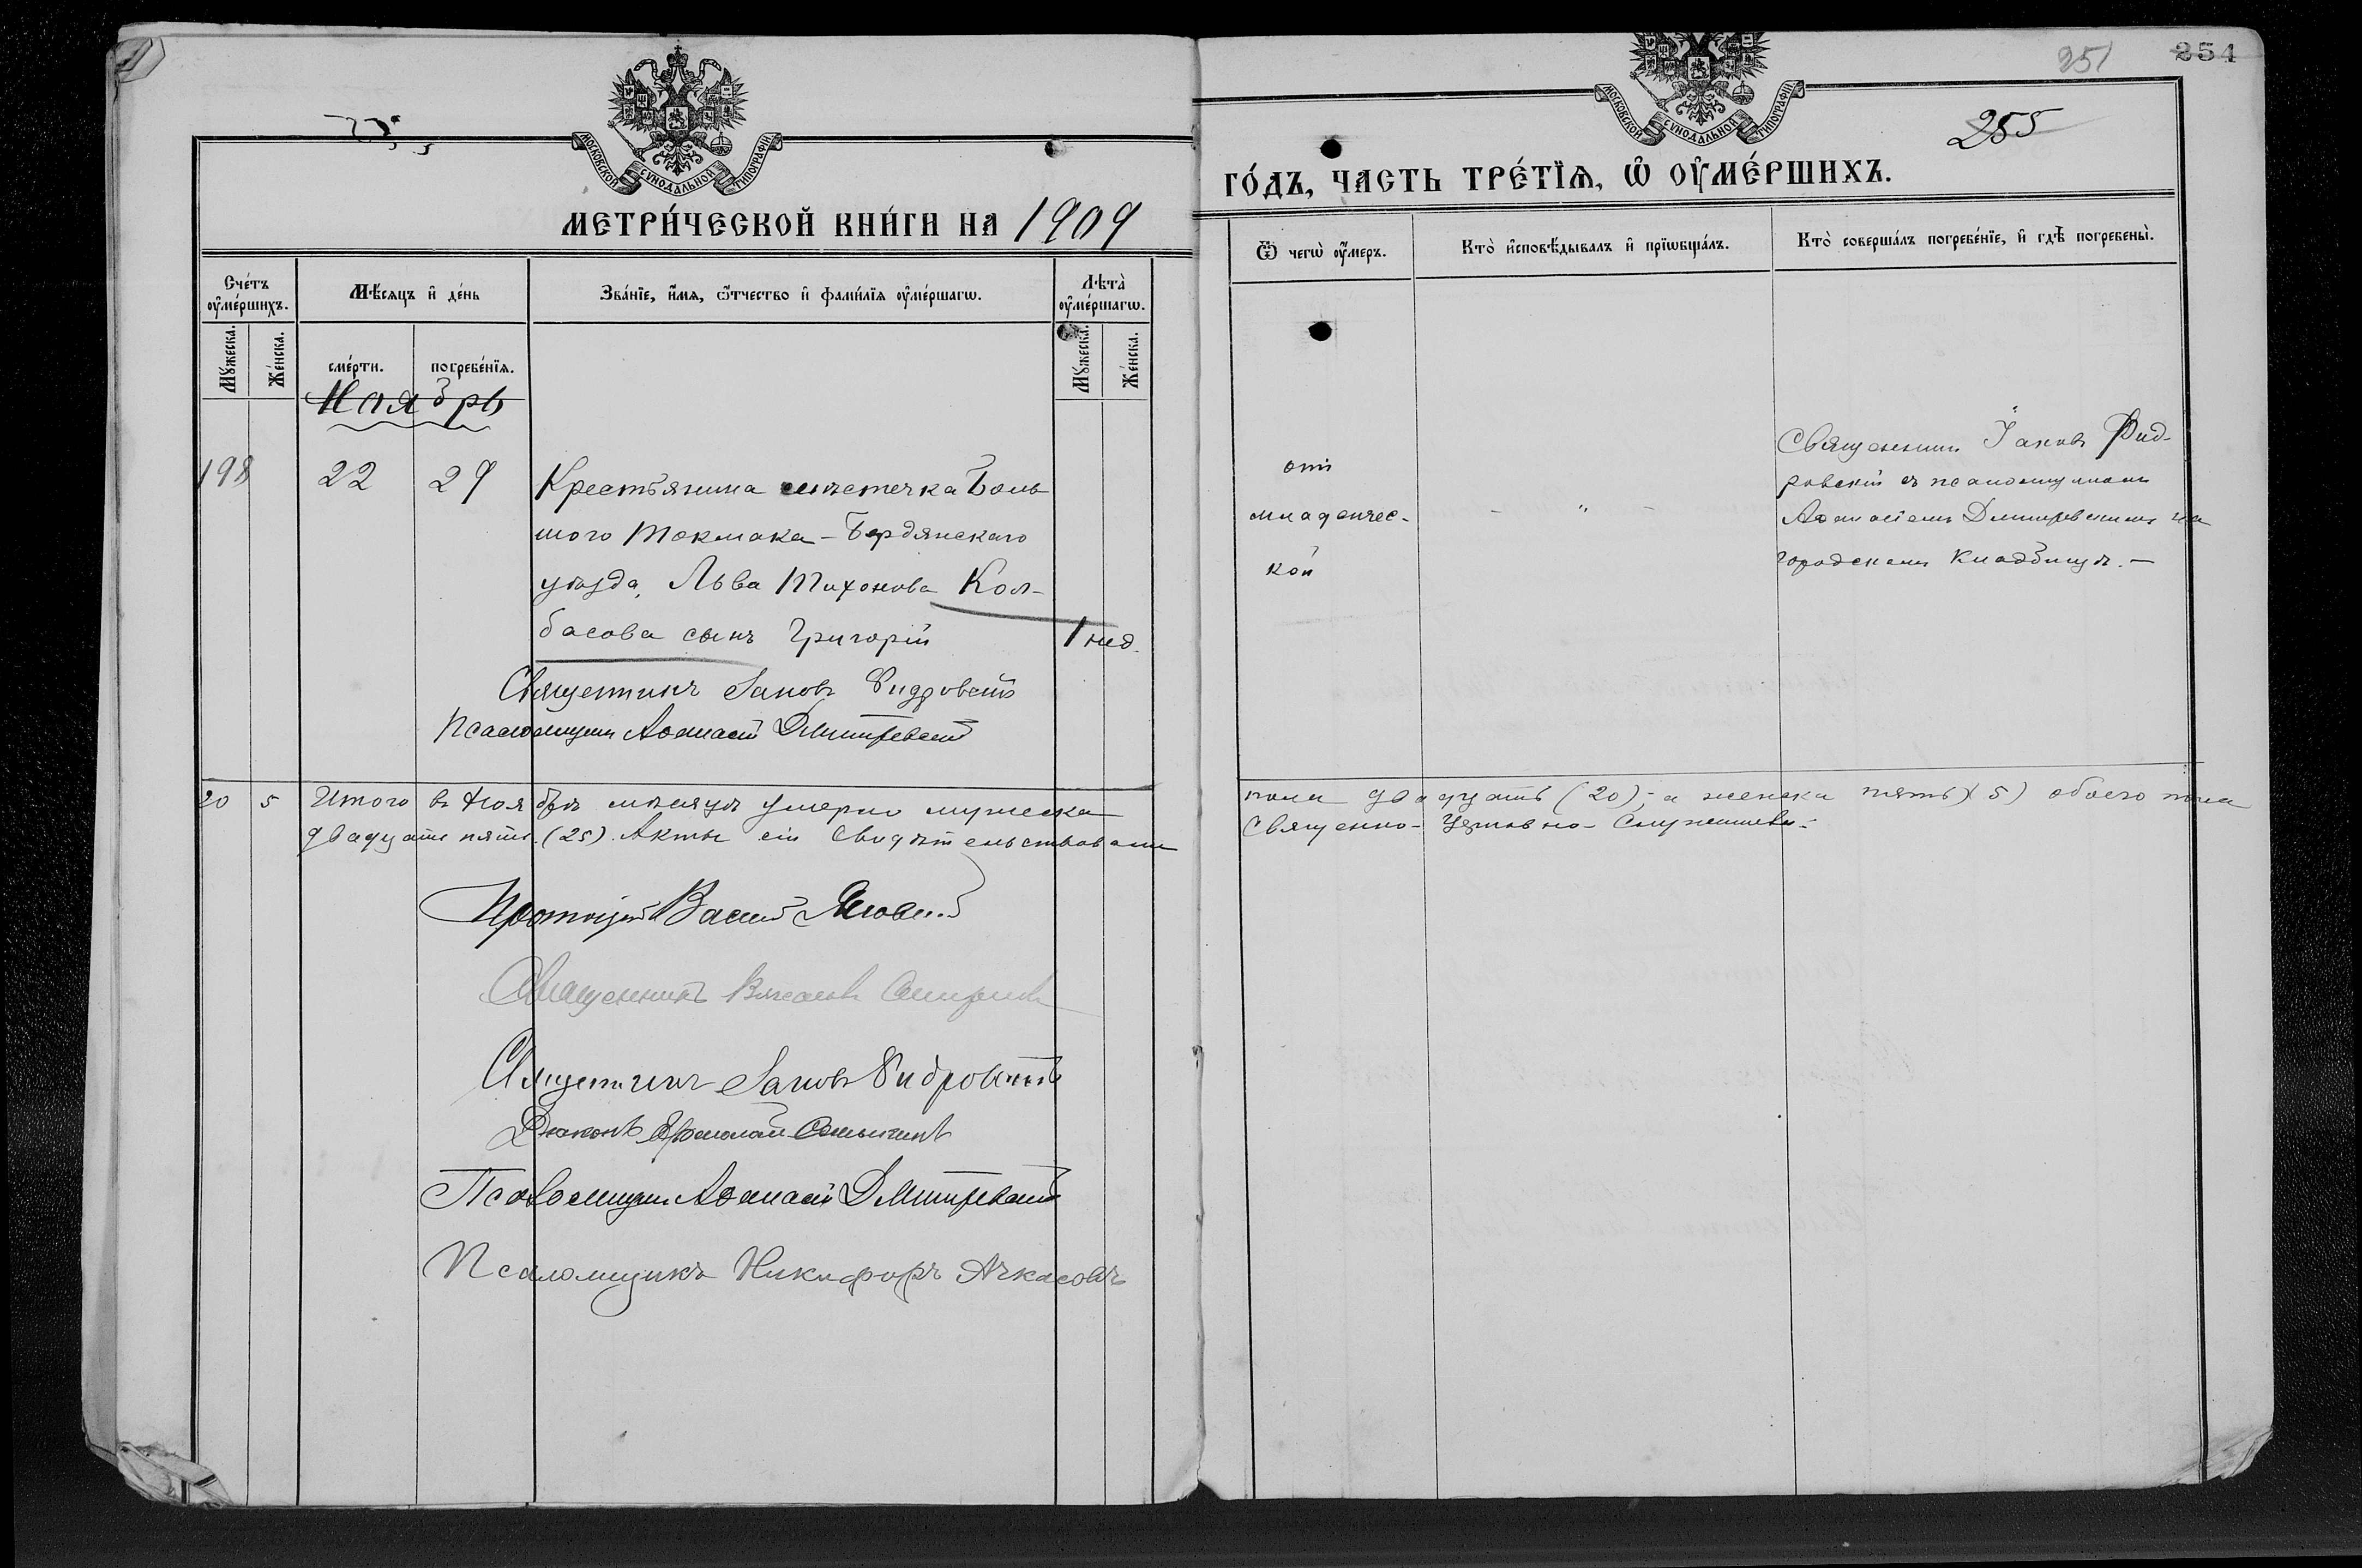 МОСКОВСКОЙ СѴНОДАЛЬНОЙ ТИПОГРАФІИ
МЕТРИ́ЧЕСКОЙ КНИ́ГИ НА 1909
Сче́тъ оу҆ме́ршихъ.
Мѣ́сяцъ и҆ де́нь
Зва́нїе, и҆́мя, ѻ҆́тчество и҆ фами́лїя оу҆ме́ршагѡ.
Лѣ́та оу҆ме́ршагѡ.
Мꙋ́жеска.
Же́нска.
сме́рти.
погребе́нїя.
Мꙋ́жеска.
Же́нска.
Ноябрь
198 22 29 Крестьянина мѣстечка Боль
шого Токмака - Бердянскаго
уѣзда, Льва Тихонова Кол-
басова сынъ Григорій 1 нед.
Священникъ Іаковъ Фидровскій
Псаломщикъ Аѳанасій Дмитревскій
20 5 Итого въ Ноябрѣ мѣсяцѣ умерло мужеска
двадцать пять (25). Акты сіи свидѣтельствовали
Протоіерей Василій
Священникъ
Священникъ Іаковъ Фидровскій
Діаконъ
Псаломщикъ Аѳанасій Дмитревскій
Псаломщикъ Никифоръ Ачкасовъ
251 254
МОСКОВСКОЙ СѴНОДАЛЬНОЙ ТИПОГРАФІИ
255
ГО́ДЪ, ЧАСТЬ ТРЕ́ТЇѦ, Ѡ҆ ОУ҆МЕ́РШИХЪ.
Ѿ чегѡ̀ оу҆́меръ.
Кто̀ и҆сповѣ́дывалъ и҆ прїѡбща́лъ.
Кто̀ соверша́лъ погребе́нїе, и҆ гдѣ̀ погребены̀.
отъ
младенчес-
кой
- " -
Священникъ Іаковъ Фид-
ровскій съ псаломщикомъ
Аѳанасіемъ Дмитревскимъ на
городскомъ кладбищѣ. —
пола двадцать (20); а женска пять (5) обоего пола
Священно-Церковно-Служители: